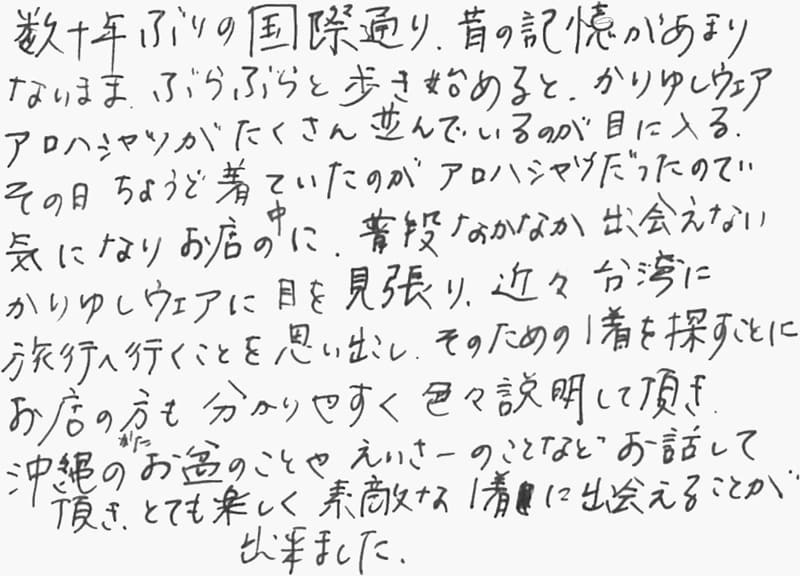 数十年ぶりの国際通り、昔の記憶があまり
ないまま、ぶらぶらと歩き始めると、かりゆしウェア
アロハシャツがたくさん並んでいるのが目に入る。
その日ちょうど着ていたのがアロハシャツだったので
気になりお店の中に、普段なかなか出会えない
かりゆしウェアに目を見張り、近々台湾に
旅行へ行くことを思い出し、そのための1着を探すことに
お店の方も分かりやすく色々説明して頂き、
沖縄のお盆のことやえいさーのことなどお話して
頂き、とても楽しく素敵な1着に出会えることが
出来ました。